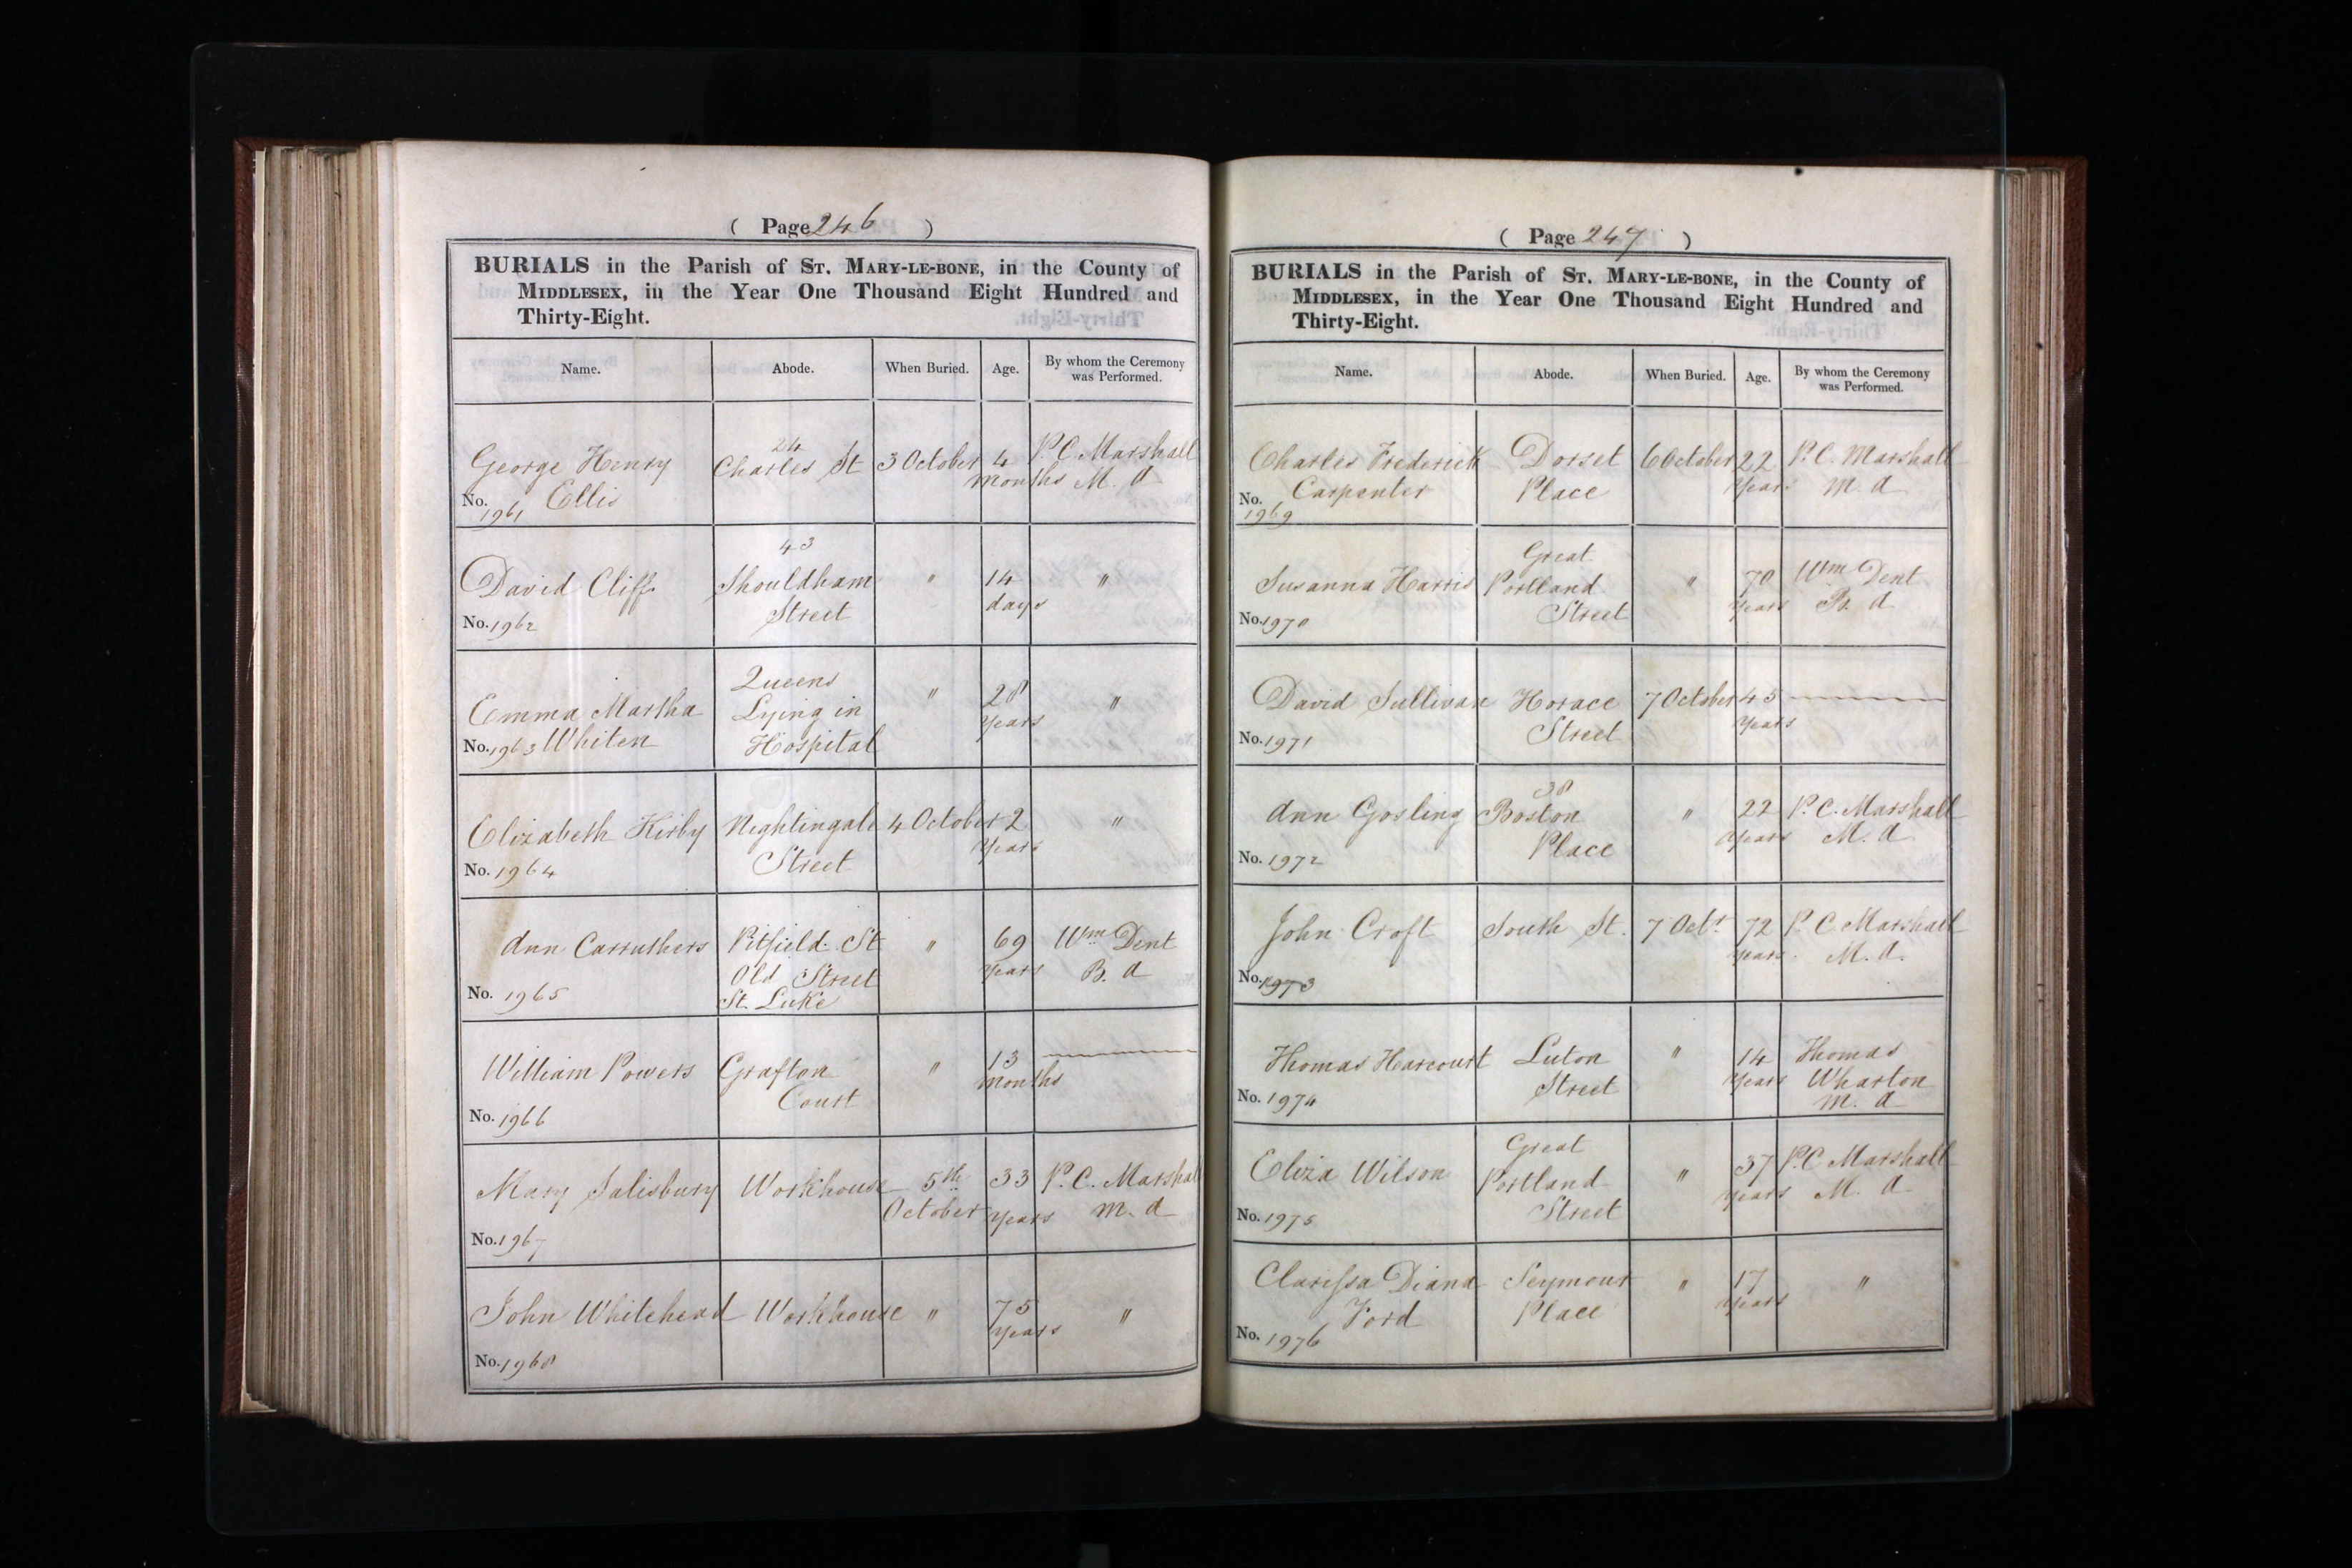 ( Page 246 )
BURIALS in the Parish of ST. MARY-LE-BONE, in the County of
MIDDLESEX, in the Year One Thousand Eight Hundred and
Thirty-Eight.
Name. Abode. When Buried. Age. By whom the Ceremony
was Performed.
24
George Henry Charles St 3 October 4 P. C. Marshall
months M. A
No. 1961 Ellis
43
David Cliff Shouldham " 14 "
Street days
No. 1962
Queens
Emma Martha Lying in " 28 "
Years
No. 1963 Whiten Hospital
Elizabeth Kirby Nightingale 4 October 2 "
Street Years
No. 1964
Ann Carruthers Pitfield St " 69 Wm Dent
Old Street Years B. A
No. 1965 St Luke
William Powers Grafton " 13
Court months
No. 1966
Mary Salisbury Workhouse 5th 33 P. C. Marshal
October Years M. A
No. 1967
John Whitehead Workhouse " 75 "
Years
No. 1968
( Page 247 )
BURIALS in the Parish of ST. MARY-LE-BONE, in the County of
MIDDLESEX, in the Year One Thousand Eight Hundred and
Thirty-Eight.
Name. Abode. When Buried. Age. By whom the Ceremony
was Performed.
Charles Frederick Dorset 6 October 22 P. C. Marshall
Carpenter Place Years M. A
No. 1969
Great
Susanna Harris Portland " 70 Wm Dent
Street Years B. A
No. 1970
David Sullivan Horace 7 October 45
Street Years
No. 1971
38
Ann Gosling Boston " 22 P. C. Marshall
Place Years M. A
No. 1972
John Croft South St. 7 Octr 72 P. C. Marshall
Years. M. A.
No. 1973
Thomas Harcourt Luton " 14 Thomas
Street Years Wharton
No. 1974 M. A
Great
Eliza Wilson Portland " 37 P. C Marshall
Street Years M. A
No. 1975
Clarissa Diana Seymour " 17 "
Ford Place Years
No. 1976